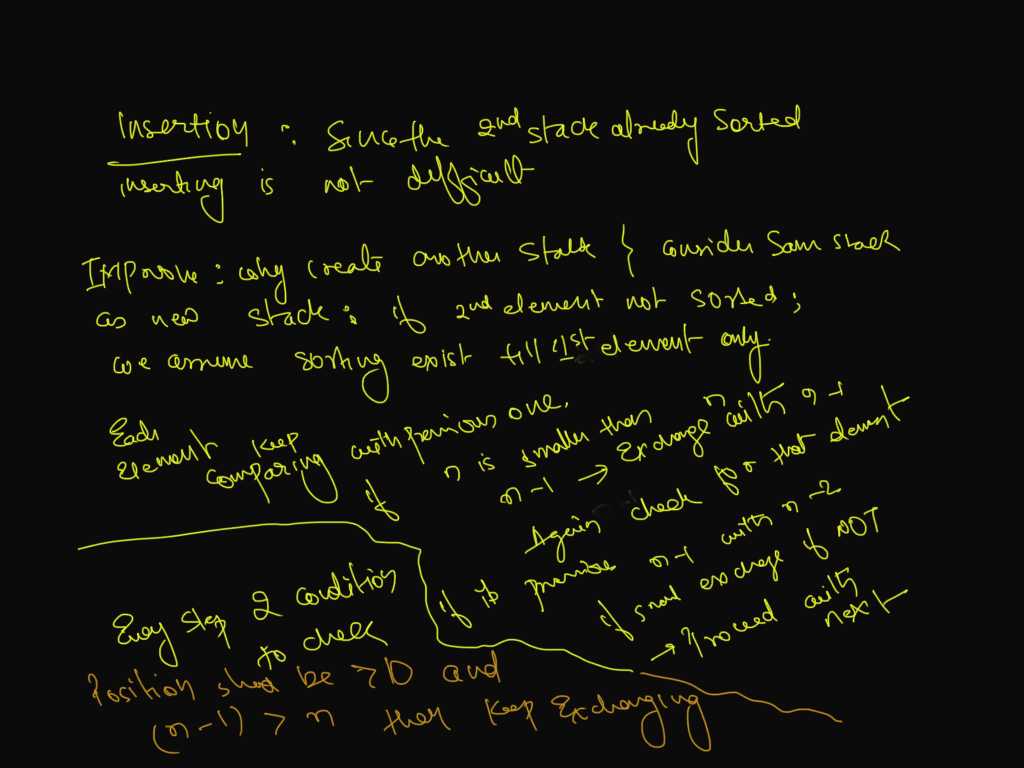 Insertion : Since the 2nd stack already sorted
inserting is not difficult
IMProve : why create another stack } consider Sam stack
as new stack : if 2nd element not sorted ;
we assume sorting exist till 1st element only.
Each
element keep
comparing with previous one.
if n is smaller than
n-1 → Exchange n with n-1
Again check for that element
if it previous n-1 with n-2
if small exchange if NOT
→ Proceed with
next
Every step 2 condition
to check
Position should be >0 and
(n-1) > n then keep Exchanging